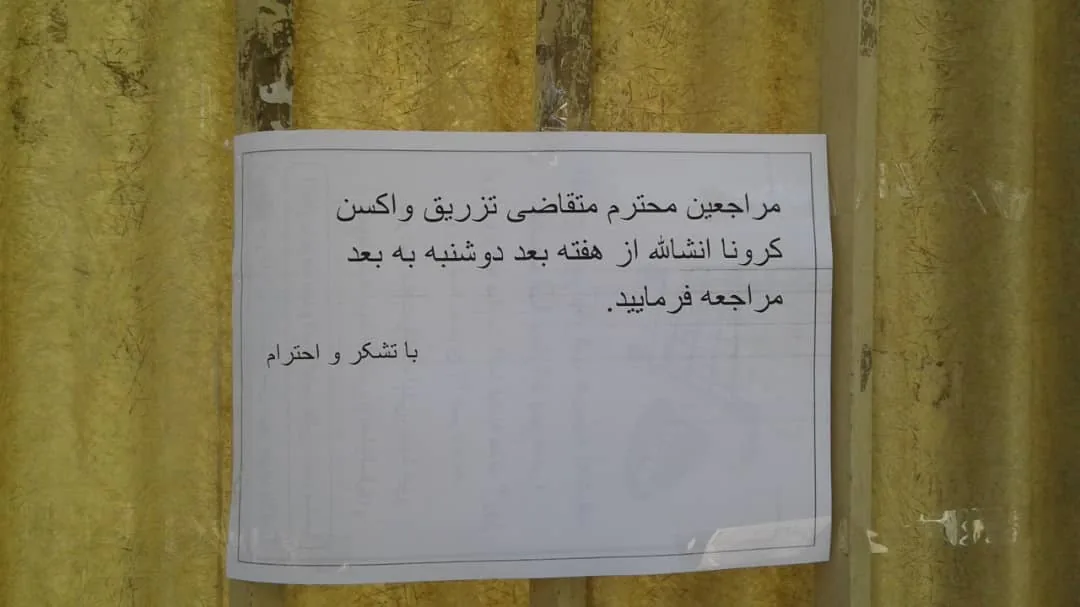 مراجعین محترم متقاضی تزریق واکسن
کرونا انشالله از هفته بعد دوشنبه به بعد
مراجعه فرمایید.
با تشکر و احترام